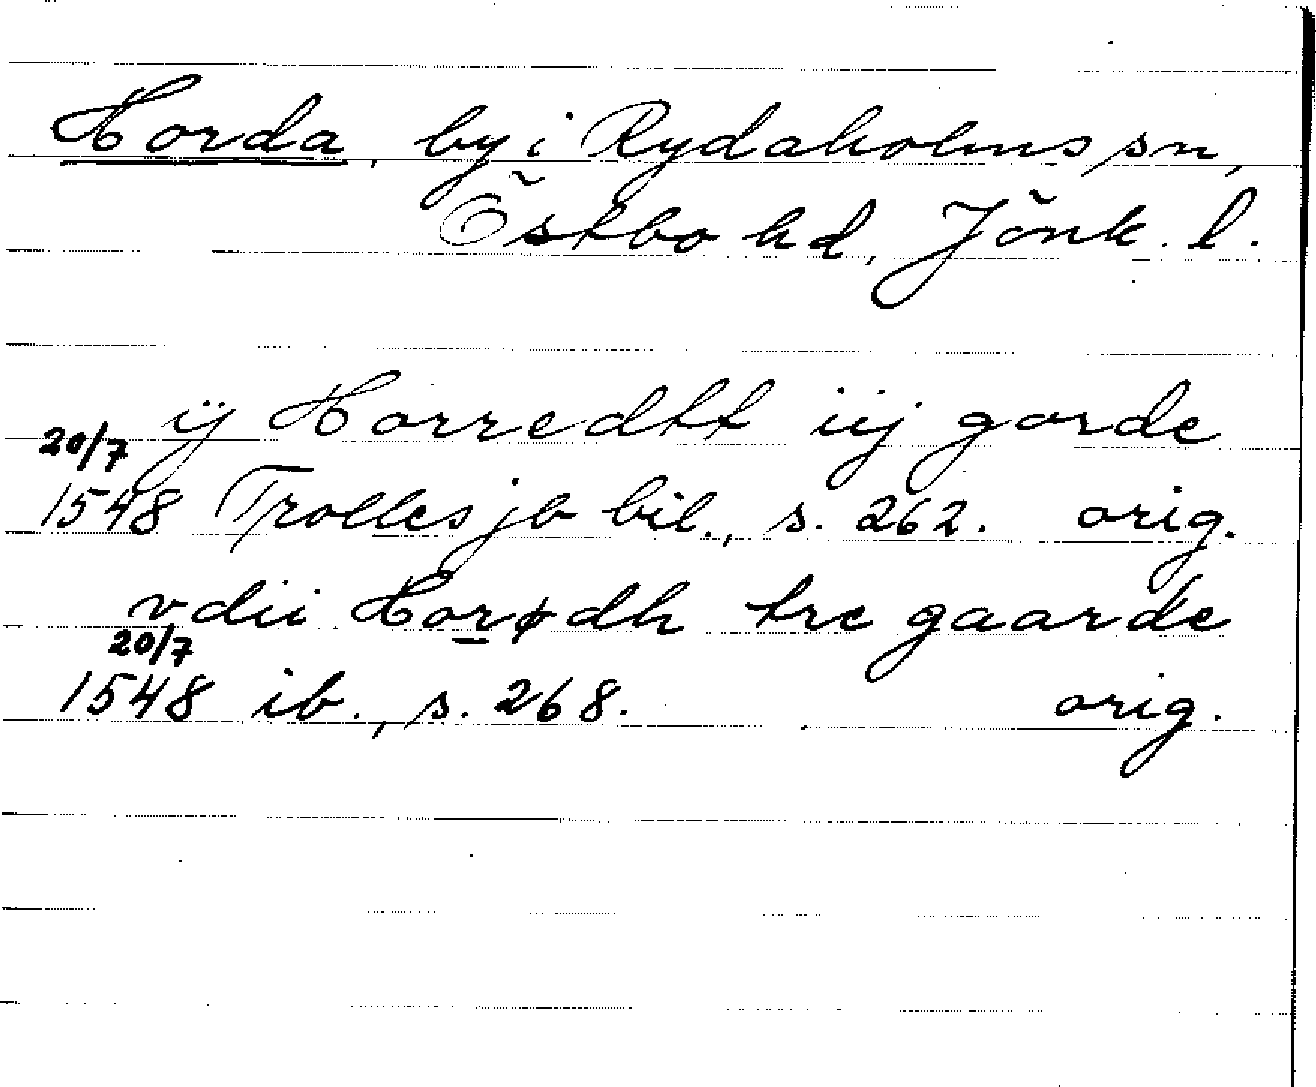 Horda, by i Rydaholms sn,
Östbo hd, Jönk. l.
ÿ Horredtt iij gorde
20/7
1548 Trolles jb bil., s. 262. orig.
vdii Horødh tre gaarde
20/7
1548 ib., s. 268. orig.